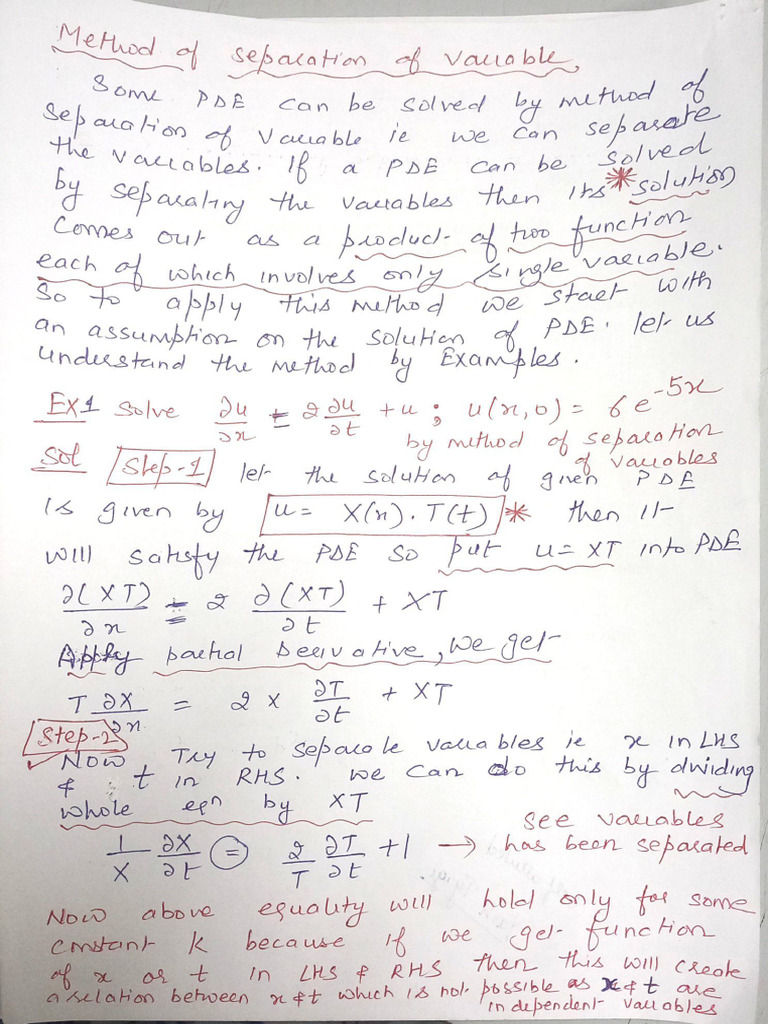 Method of separation of variable.
Some PDE can be solved by method of
separation of variable ie we can separate
the variables. If a PDE can be solved
by separating the variables then its * solution
comes out as a product of two function
each of which involves only single variable.
So to apply this method we start with
an assumption on the solution of PDE. let us
understand the method by Examples.
EX1 Solve ∂u/∂x = 2 ∂u/∂t + u ; u(x,0) = 6 e^-5x
by method of separation
of variables
Sol Step-1 let the solution of given PDE
is given by u = X(x) . T(t) * then it
will satisfy the PDE so put u = XT into PDE
∂(XT)/∂x = 2 ∂(XT)/∂t + XT
Apply partial Derivative, we get
T ∂X/∂x = 2 X ∂T/∂t + XT
Step-2
Now Try to separate variables ie x in LHS
& t in RHS. we can do this by dividing
whole eqn by XT
1/X ∂X/∂t = 2/T ∂T/∂t + 1 → see variables
has been separated
Now above equality will hold only for some
constant k because if we get function
of x or t in LHS & RHS then this will create
a relation between x & t which is not possible as x & t are
independent variables